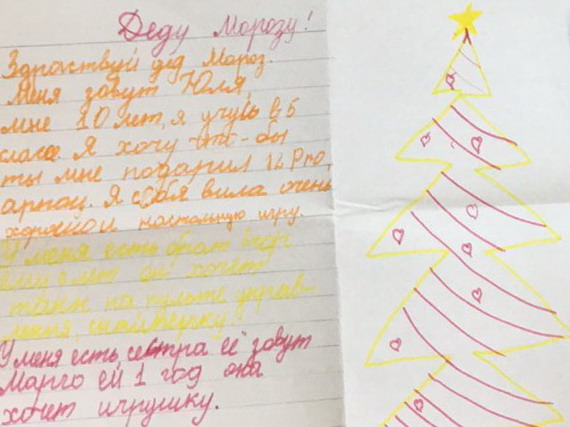 Деду Морозу!
Здравствуй дед Мороз.
Меня зовут Юля,
мне 10 лет, я учусь в 5
класе. Я хочу что-бы
ты мне подарил 12 Pro,
и настольную игру.
Я себя вила очень
хорошо
У меня есть брат Егор
ему лет он хочет
танк на пульте управ-
ления,
У меня есть сестра её зовут
Марго ей 1 год она
хочет игрушку.